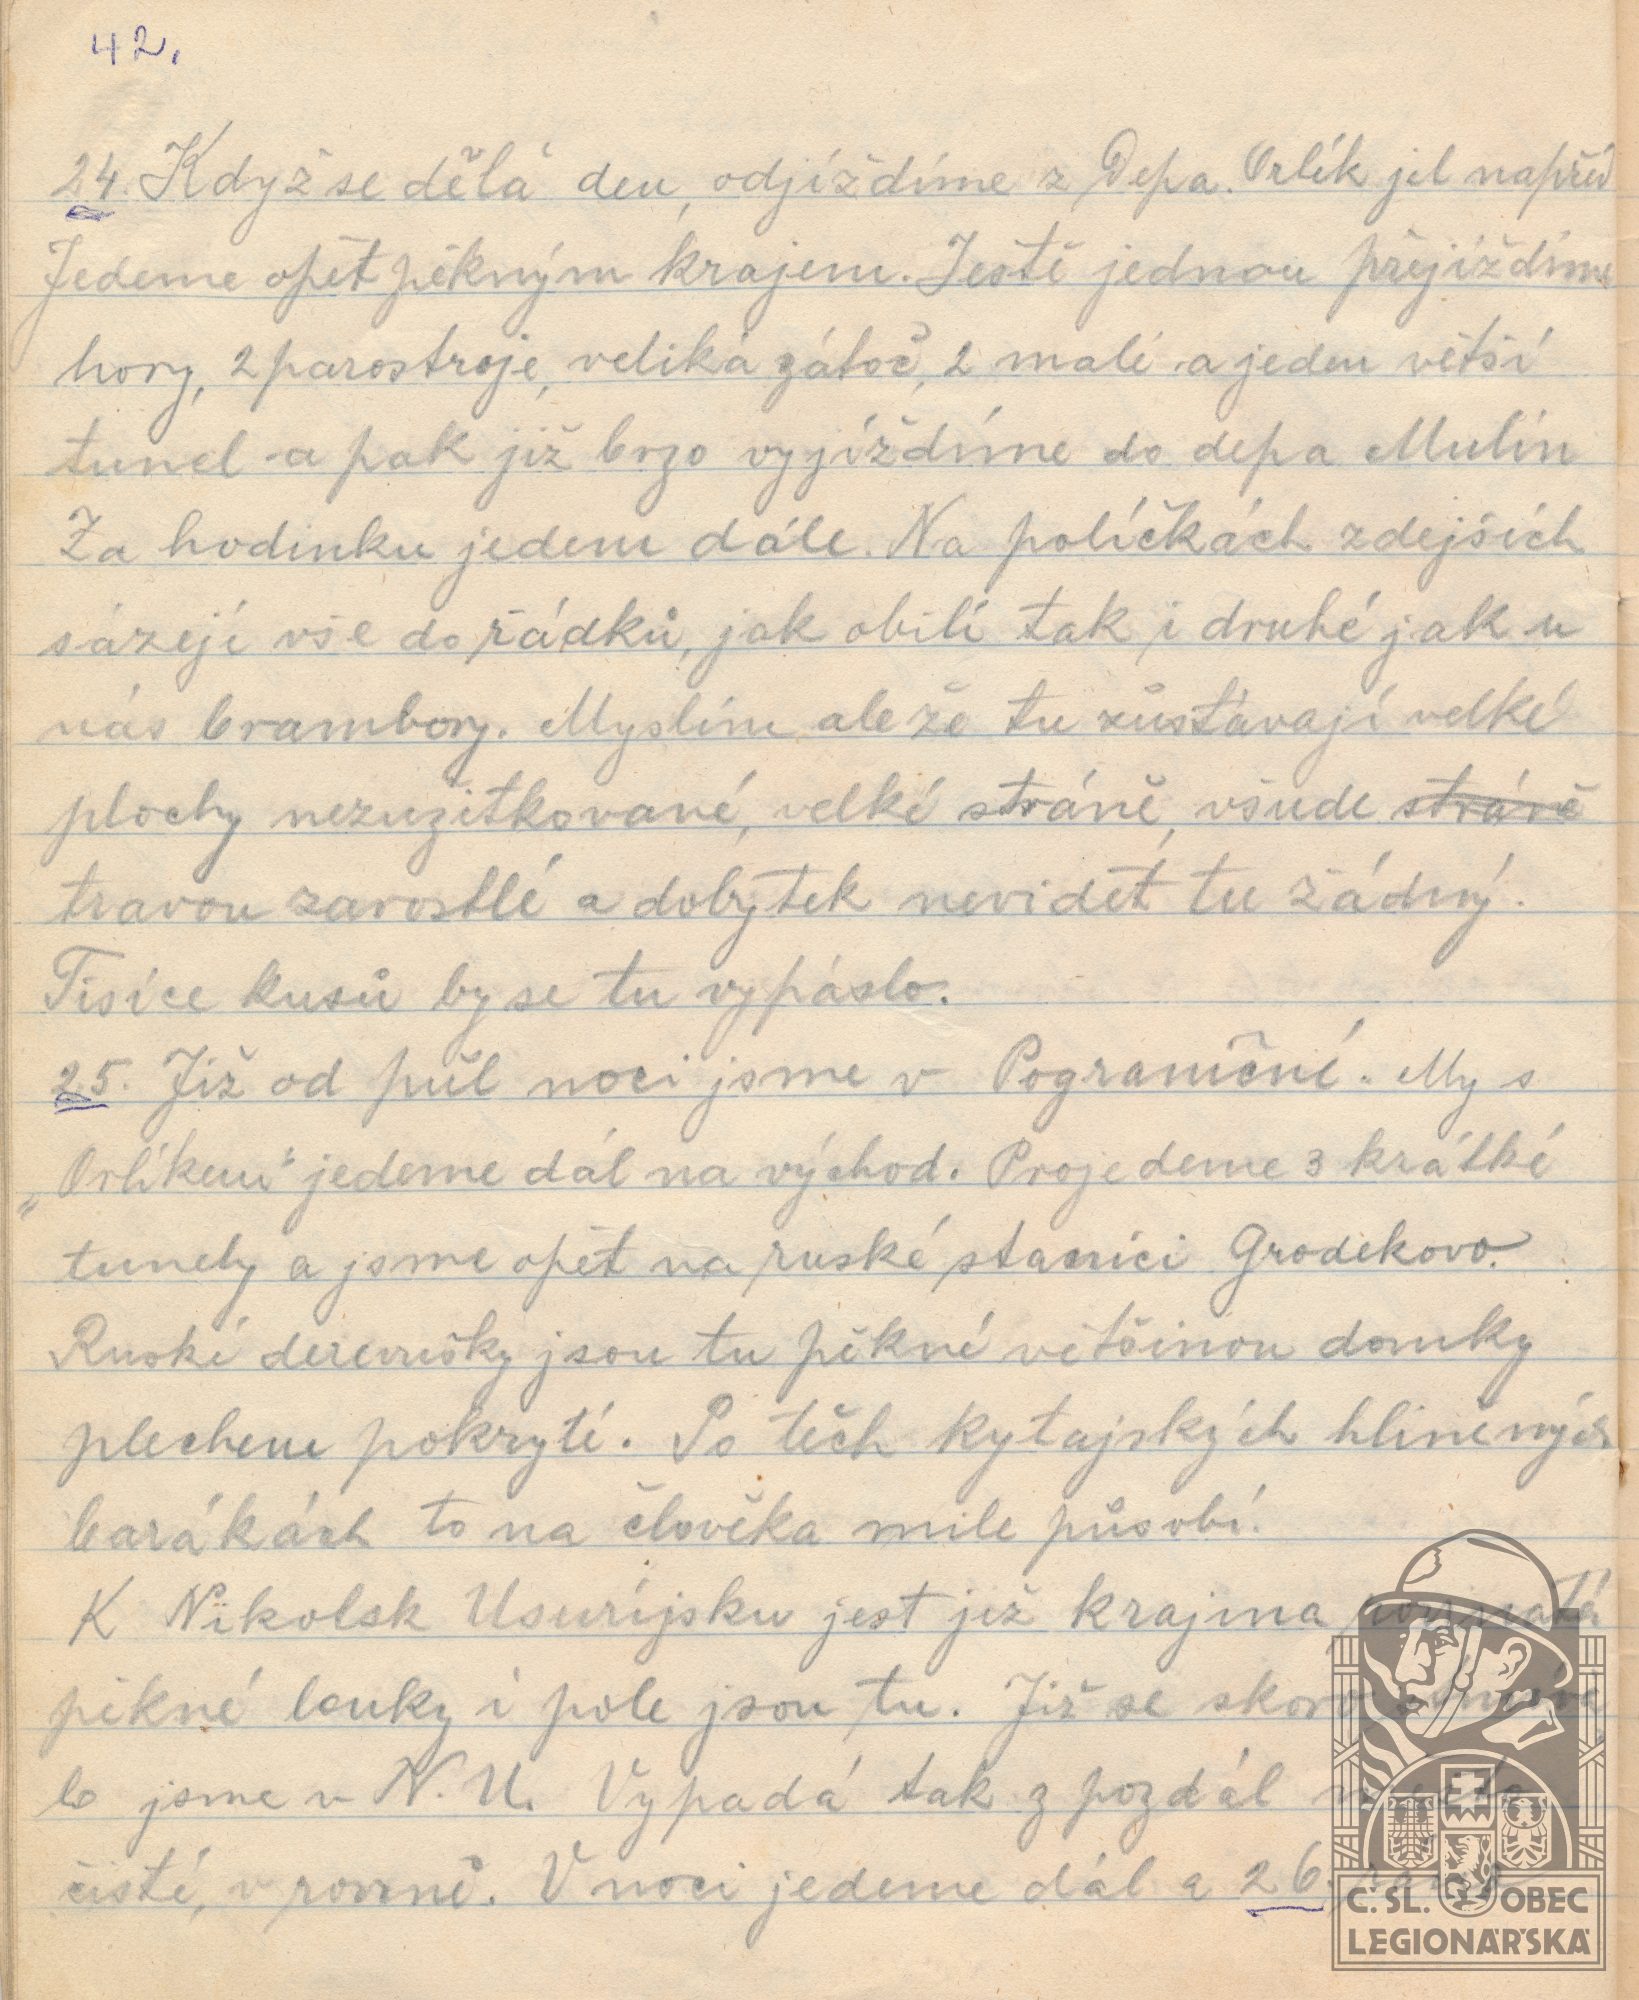 42.
24. Když se dělá den, odjíždíme z Depa. Orlík jel napřed
Jedeme opět pěkným krajem. Ještě jednou přejíždíme
hory, 2 parostroje, veliká zátoč, 2 malé a jeden větší
tunel a pak již brzo vyjíždíme do depa Mulin
Za hodinku jedem dále. Na políčkách zdejších
sázejí vše do řádků, jak obilí tak i druhé jak u
nás brambory. Myslím ale že tu zůstávají velké
plochy nezužitkované, velké stráně, všude stráně
travou zarostlé a dobytek nevidět tu žádný.
Tisíce kusů by se tu vypáslo.
25. Již od půl noci jsme v Pograničné. My s
„Orlíkem" jedeme dál na východ. Projedeme 3 krátké
tunely a jsme opět na ruské stanici Grodekovo.
Ruské derevušky jsou tu pěkné většinou domky
plechem pokryté. Po těch kytajských hliněných
barákách to na člověka mile působí.
K Nikolsk Usurijsku jest již krajina
pěkné louky i pole jsou tu. Již se skoro
lo jsme v N. U. Vypadá tak z pozdál
čisté, v rovině. V noci jedeme dál a 26.
Č. SL. OBEC
LEGIONÁŘSKÁ